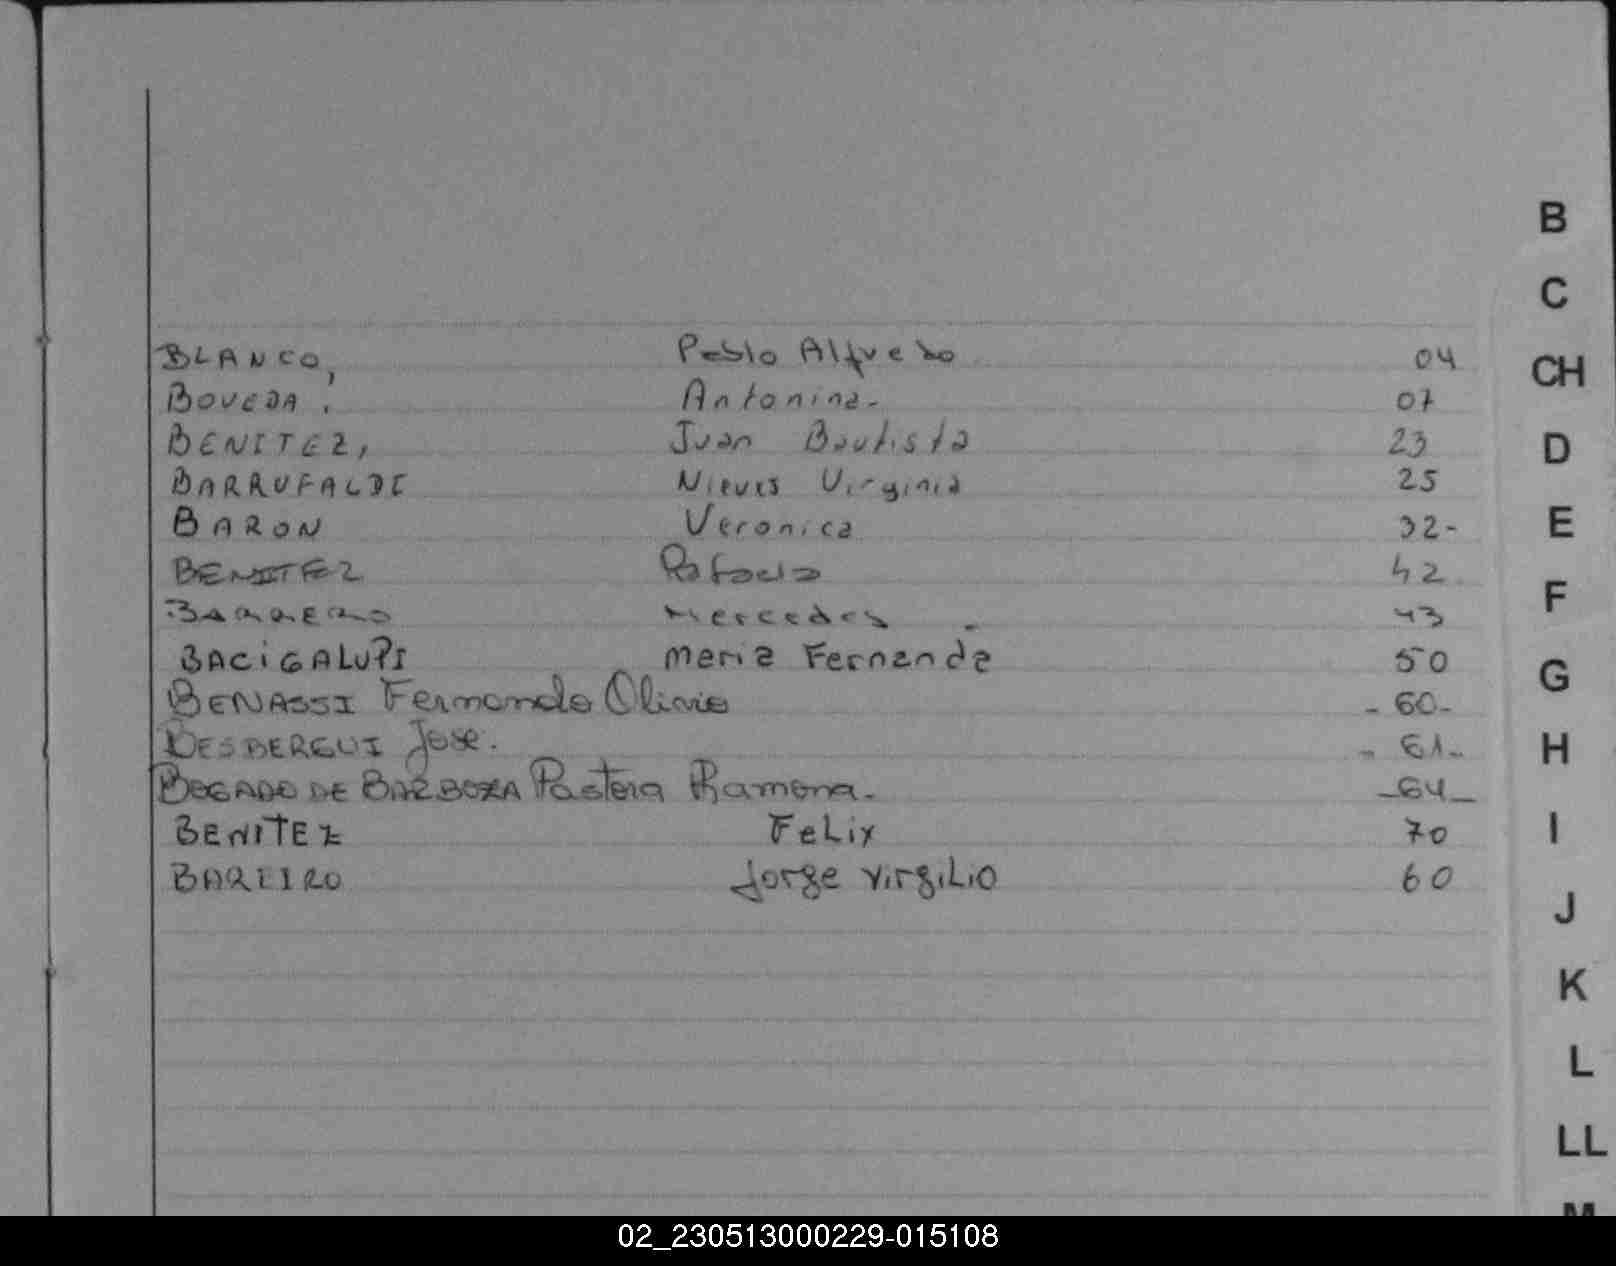 BLANCO, Pablo Alfredo 04
BOVEDA. Antonina- 07
BENITEZ, Juan Bautista 23
BARRUFALDI Nieves Virginia 25
BARON Veronica 32-
BENITEZ Rafaela 42
BARRERO Mercedes. 43
BACIGALUPI Maria Fernanda 50
BENASSI Fernando Olivio - 60-
BESBERGUI Jose. - 61-
BOGADO DE BARBOZA Pastora Ramona. -64-
BENITEZ FeLix 70
BAREIRO Jorge VirgiLio 60
B
C
CH
D
E
F
G
H
I
J
K
L
LL
M
02_230513000229-015108